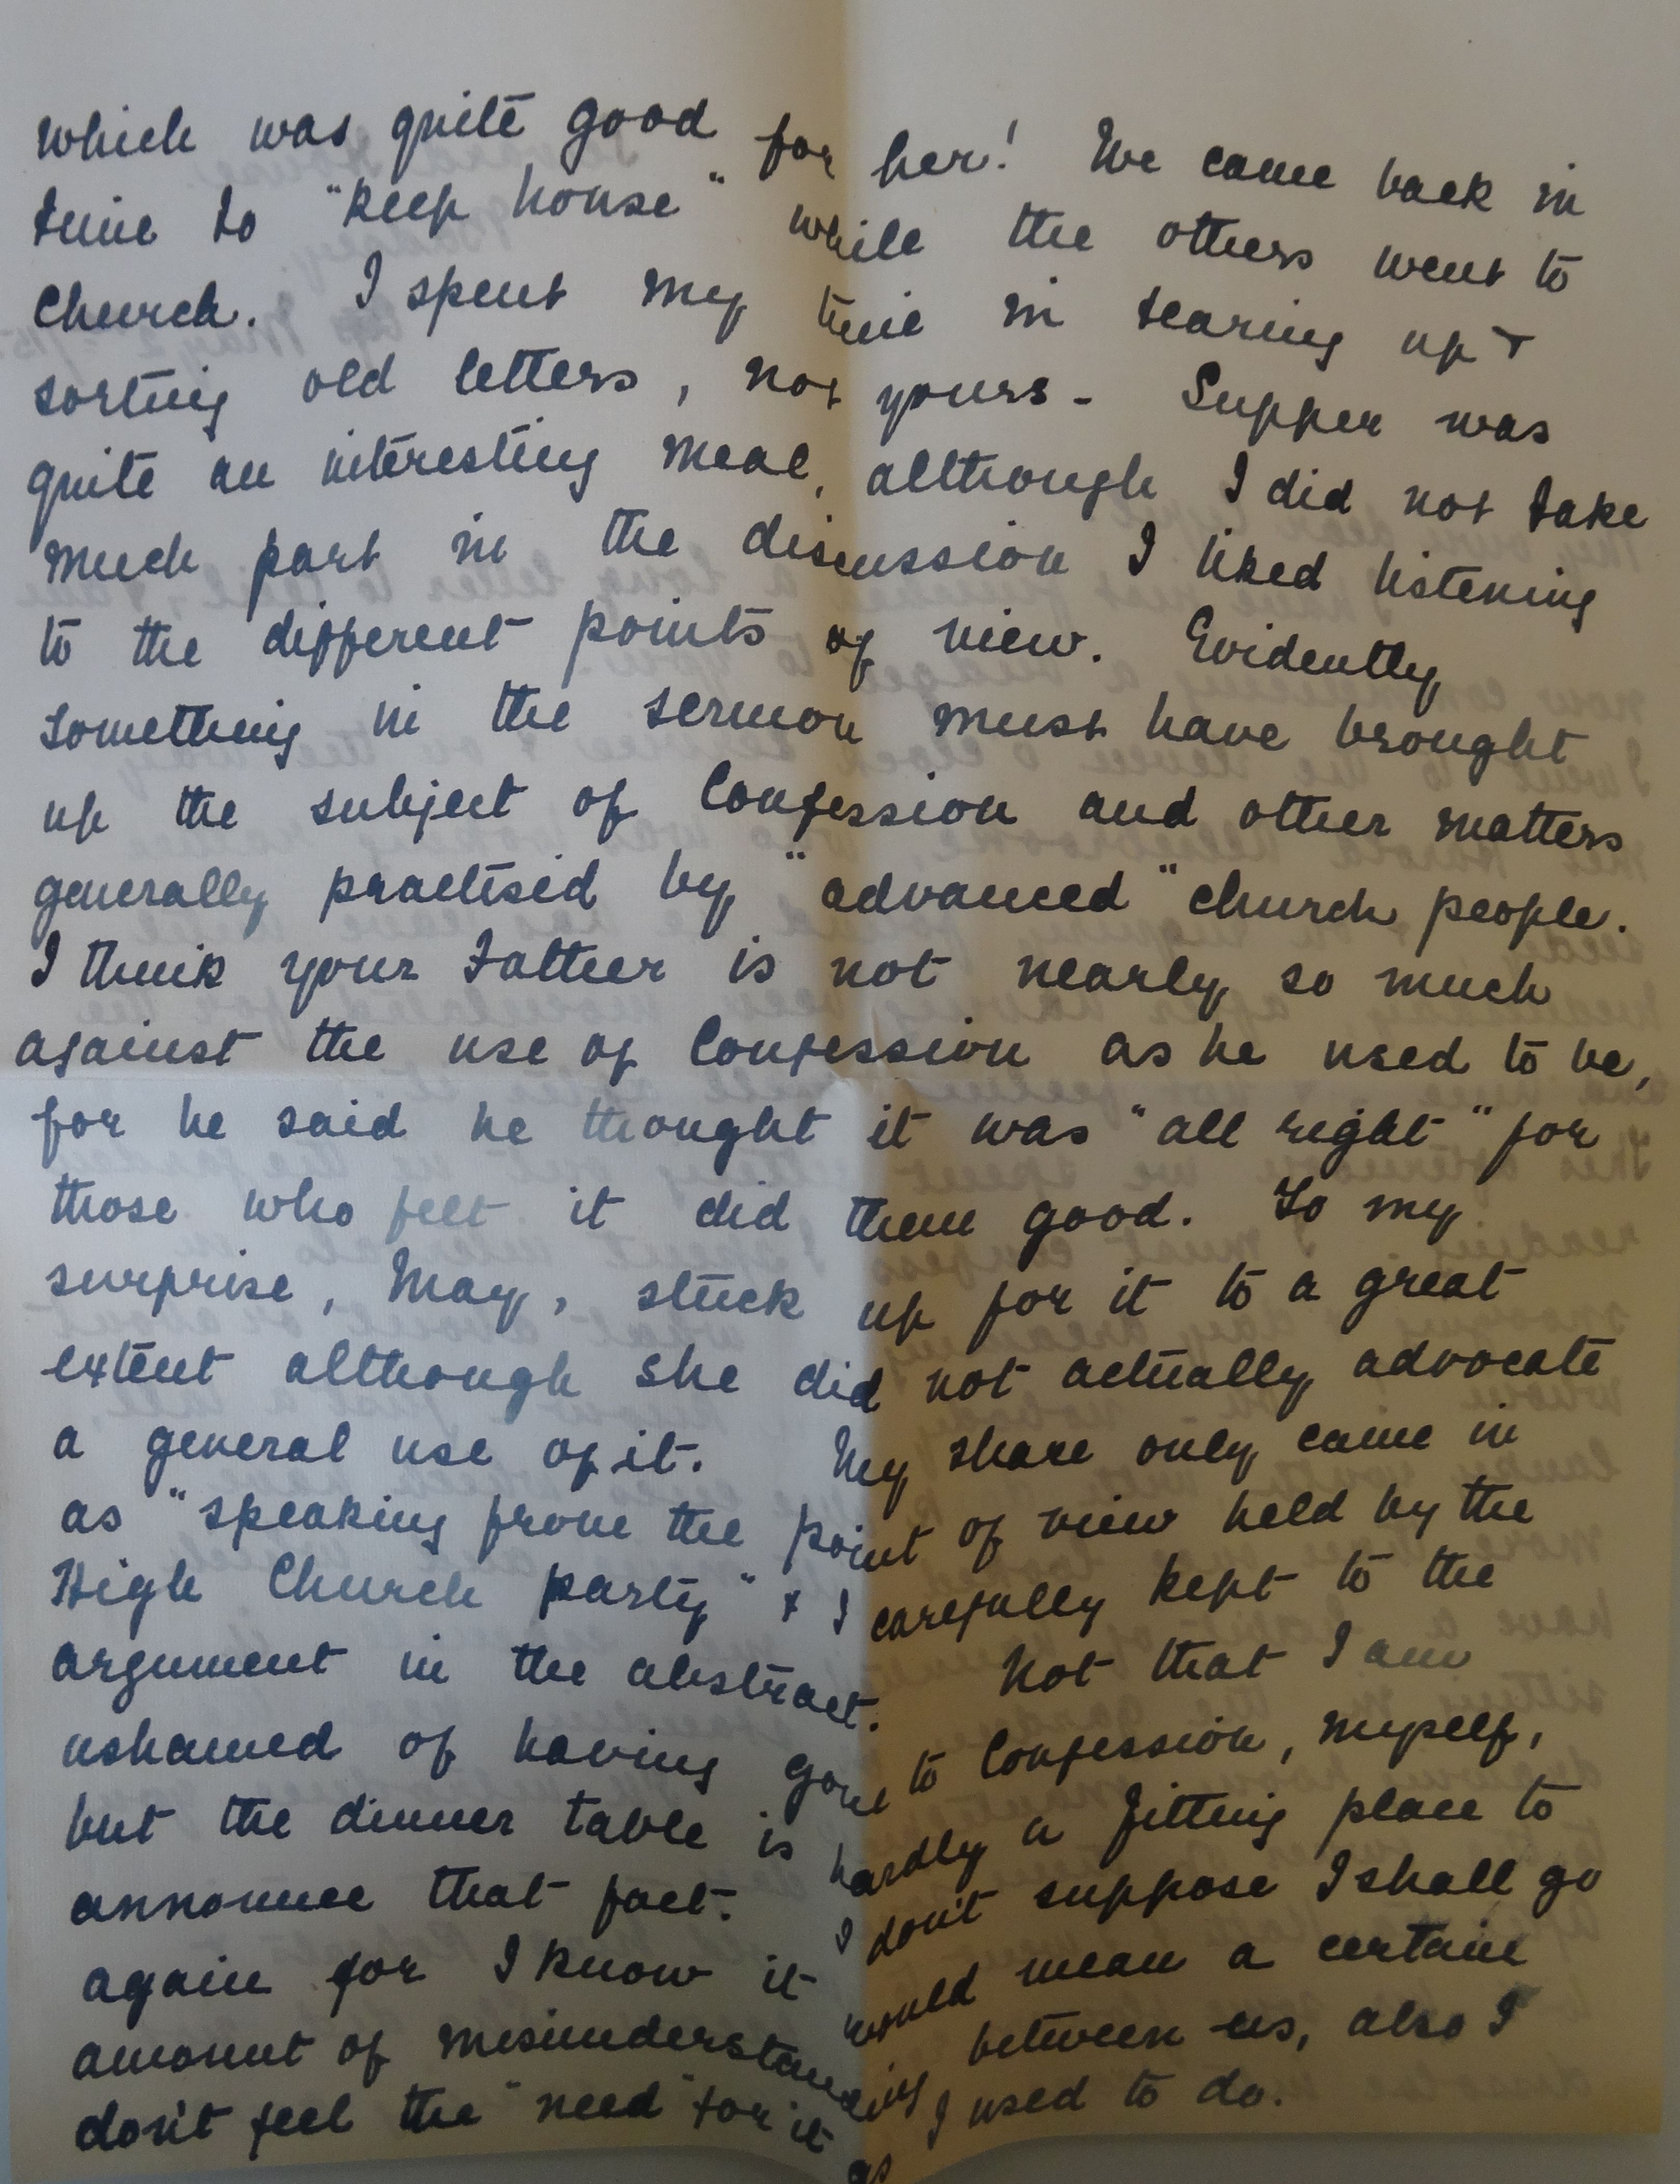 which was quite good for her! We came back in
time to "keep house" while the others went to
Church. I spent my time in tearing up &
sorting old letters, not yours - Supper was
quite an interesting meal, although I did not take
much part in the discussion I liked listening
to the different points of view. Evidently
something in the sermon must have brought
up the subject of Confession and other matters
generally practised by "advanced" church people.
I think your Father is not nearly so much
against the use of Confession as he used to be,
for he said he thought it was "all right" for
those who felt it did them good. To my
surprise, May, stuck up for it to a great
extent although she did not actually advocate
a general use of it. My share only came in
as "speaking from the point of view held by the
High Church party" & I carefully kept to the
argument in the abstract. Not that I am
ashamed of having gone to Confession, myself,
but the dinner table is hardly a fitting place to
announce that fact. I don't suppose I shall go
again for I know it would mean a certain
amount of misunderstanding between us, also I
don't feel the "need" for it as I used to do.